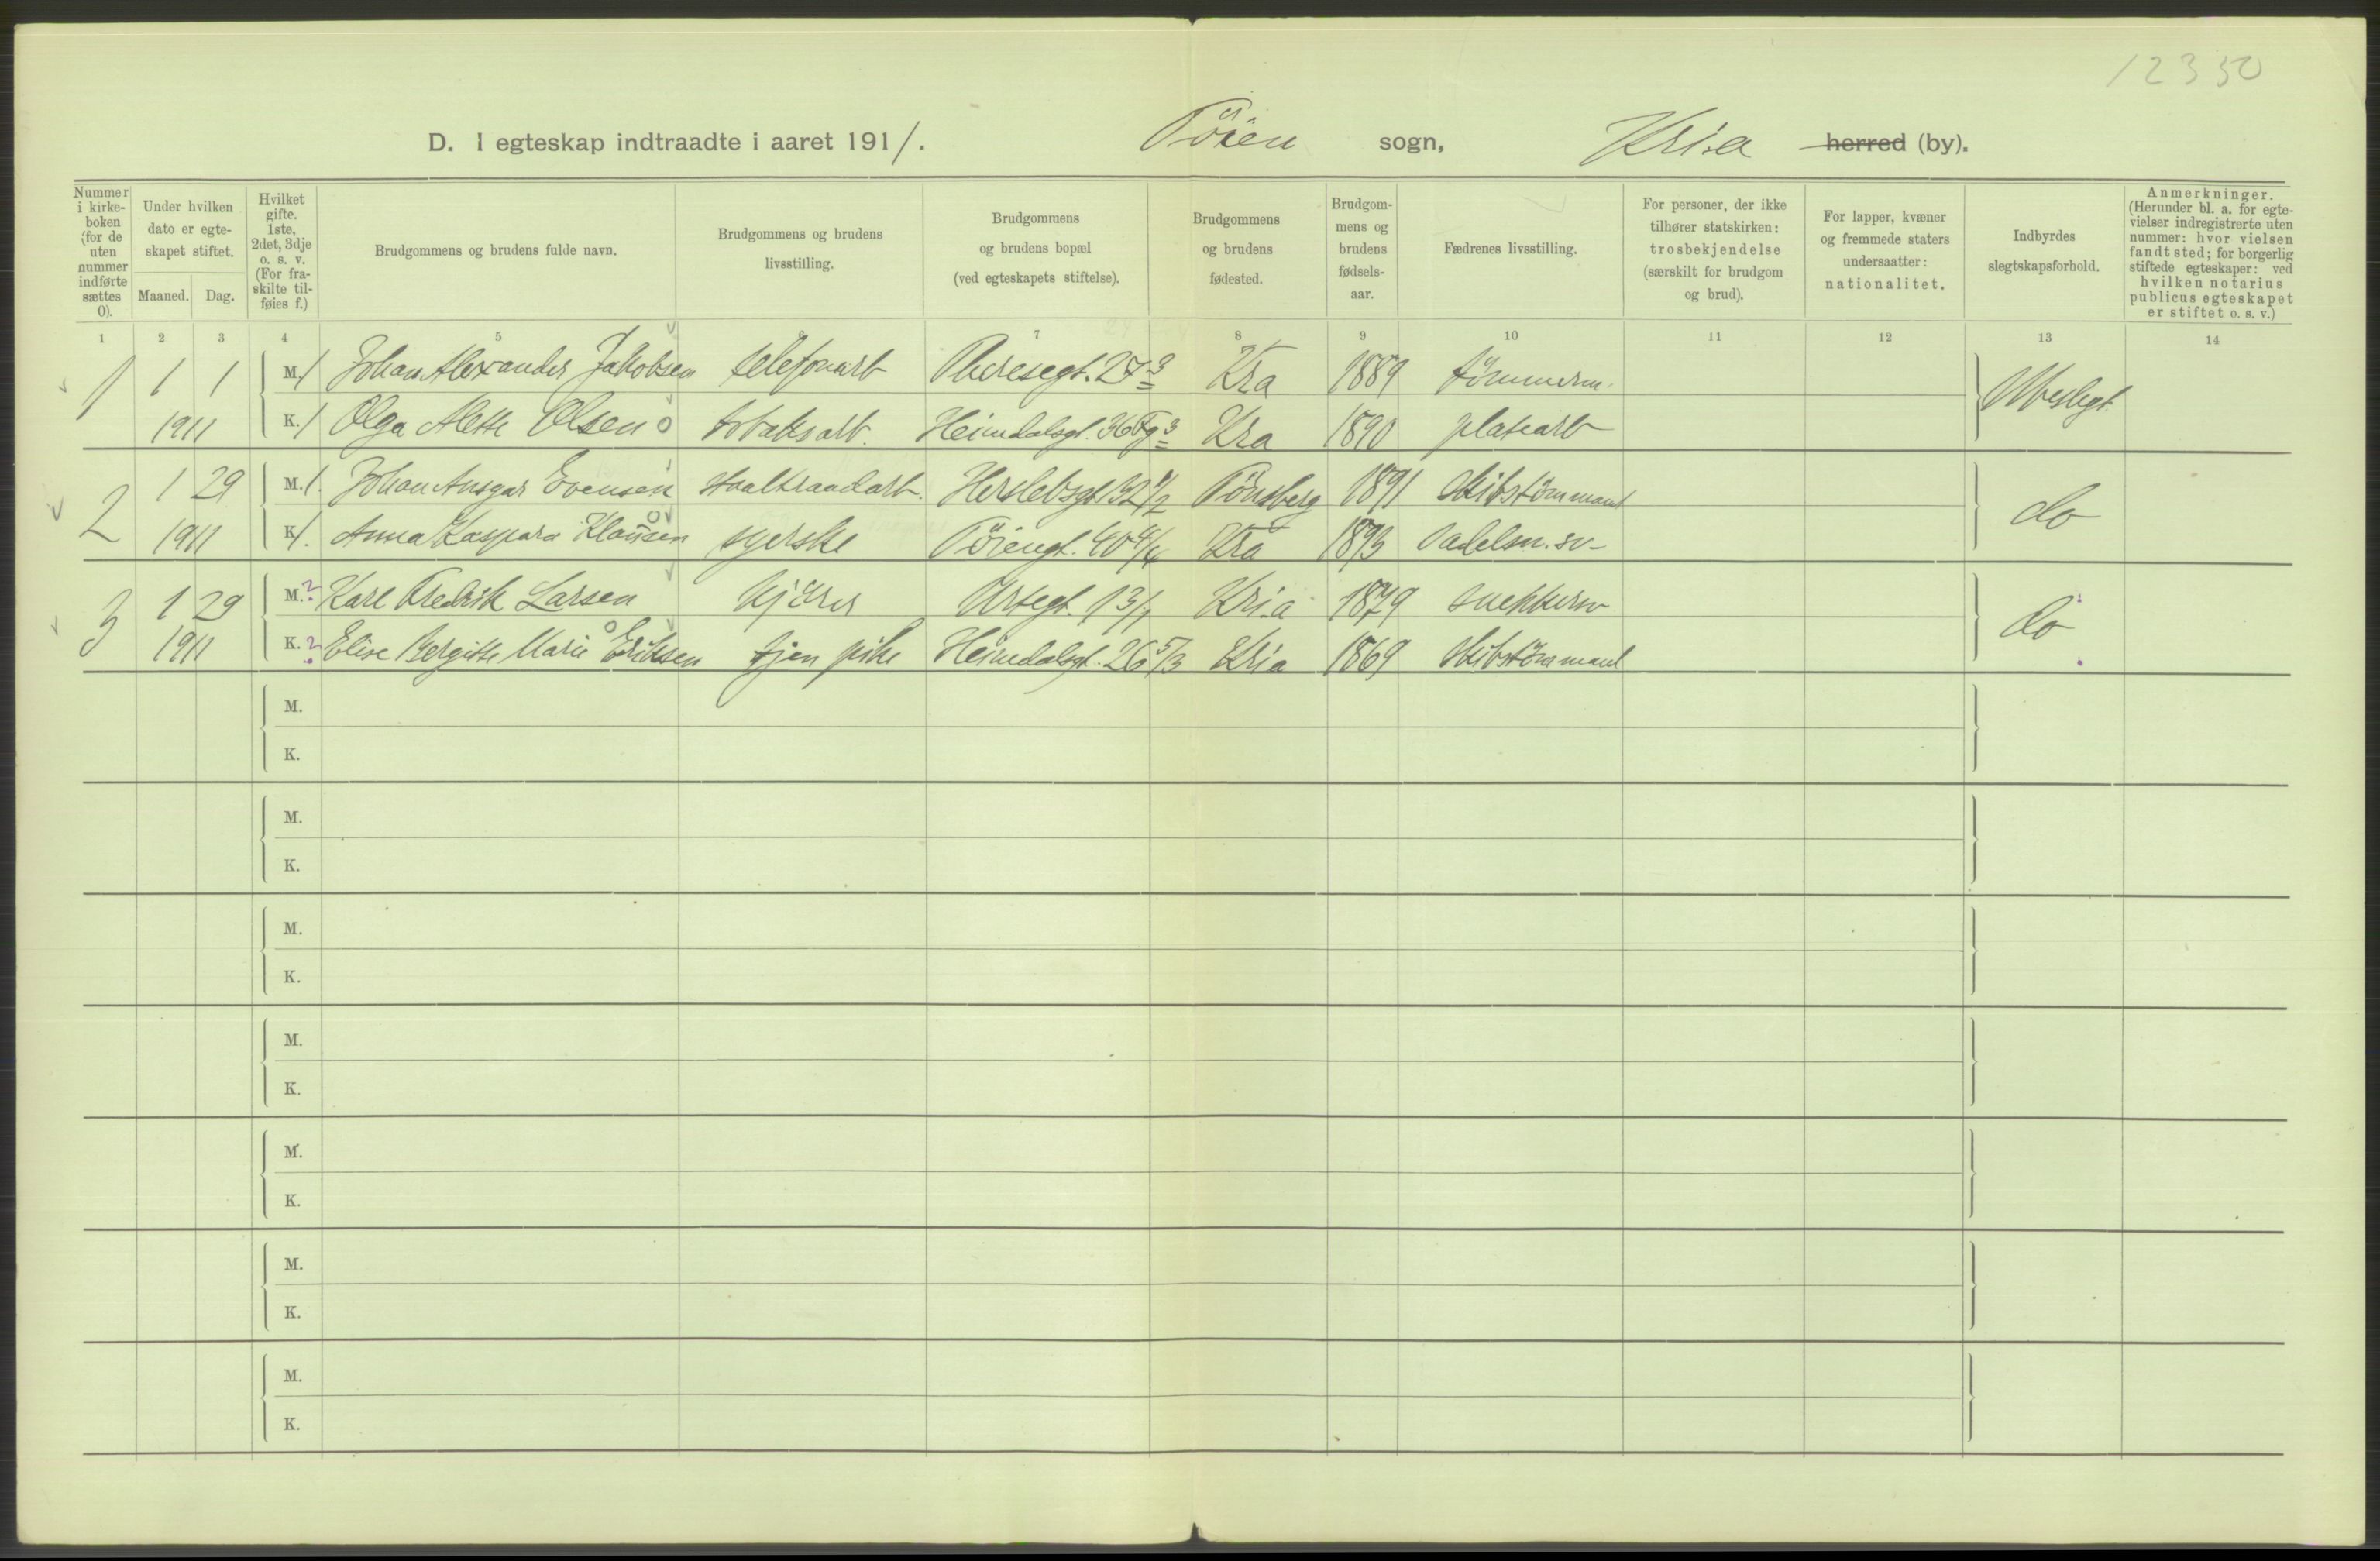 12350
D. I egteskap indtraadte i aaret 1911. Töien sogn, Kria herred (by).
Nummer i kirkeboken (for de uten nummer indførte sættes 0).
Under hvilken dato er egteskapet stiftet.
Maaned. Dag.
Hvilket gifte. 1ste, 2det, 3dje o. s. v. (For fraskilte tilføies f.)
Brudgommens og brudens fulde navn.
Brudgommens og brudens livsstilling.
Brudgommens og brudens bopæl (ved egteskapets stiftelse).
Brudgommens og brudens fødested.
Brudgommens og brudens fødselsaar.
Fædrenes livsstilling.
For personer, der ikke tilhører statskirken: trosbekjendelse (særskilt for brudgom og brud).
For lapper, kvæner og fremmede staters undersaatter: nationalitet.
Indbyrdes slegtskapsforhold.
Anmerkninger. (Herunder bl. a. for egtevielser indregistrerte uten nummer: hvor vielsen fandt sted; for borgerlig stiftede egteskaper: ved hvilken notarius publicus egteskapet er stiftet o. s. v.)
1 2 3 4 5 6 7 8 9 10 11 12 13 14
1 1 1 M. 1 Johan Alexander Jakobsen telefonarb Theresegt. Kra 1889 tömmerm. Ubeslegt.
1911 K. 1 Olga Alette Olsen tobaksarb. Heimdalsgt. 36 Kra 1890 platearb
2 1 29 M. 1. Johan Ansgar Evensen staaltraadarb. Herslebsgt. Tönsberg 1891 skibstömmand do
1911 K. 1. Anna Kaspara Klausen syerske Töiengt. 40 4/4 Kra 1893 Sadelm. sv-
3 1 29 M. ? Karl Fredrik Larsen kjörer Urtegt. Kria 1879 snekkersv do
1911 K. ? Elise Bergitte Marie Eriksen tjen pike Heimdalsgt. 26 5/3 Kria 1869 skibstömmand
M.
K.
M.
K.
M.
K.
M.
K.
M.
K.
M.
K.
M.
K.